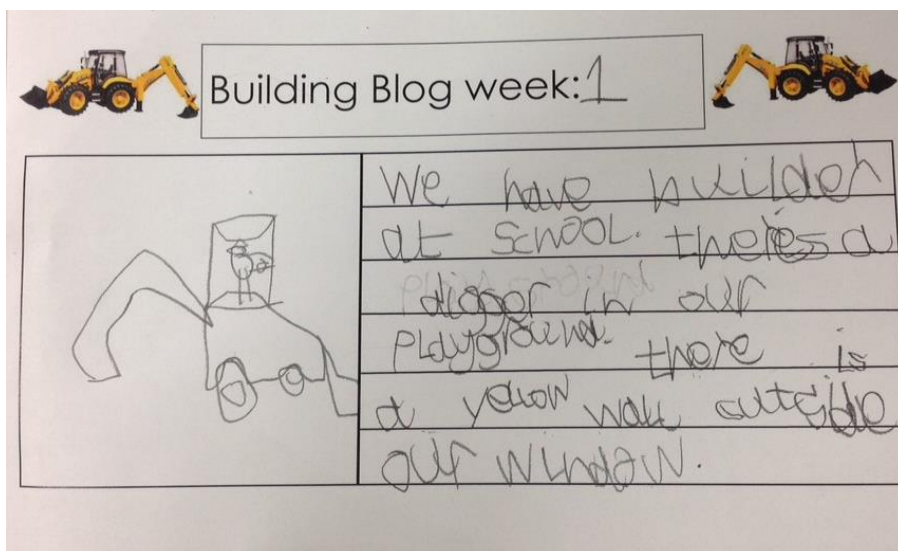 Building Blog week: 1
We have builder
at SCHOOL. there's a
digger in our
Playground. there is
a yellow wall outside
our window.